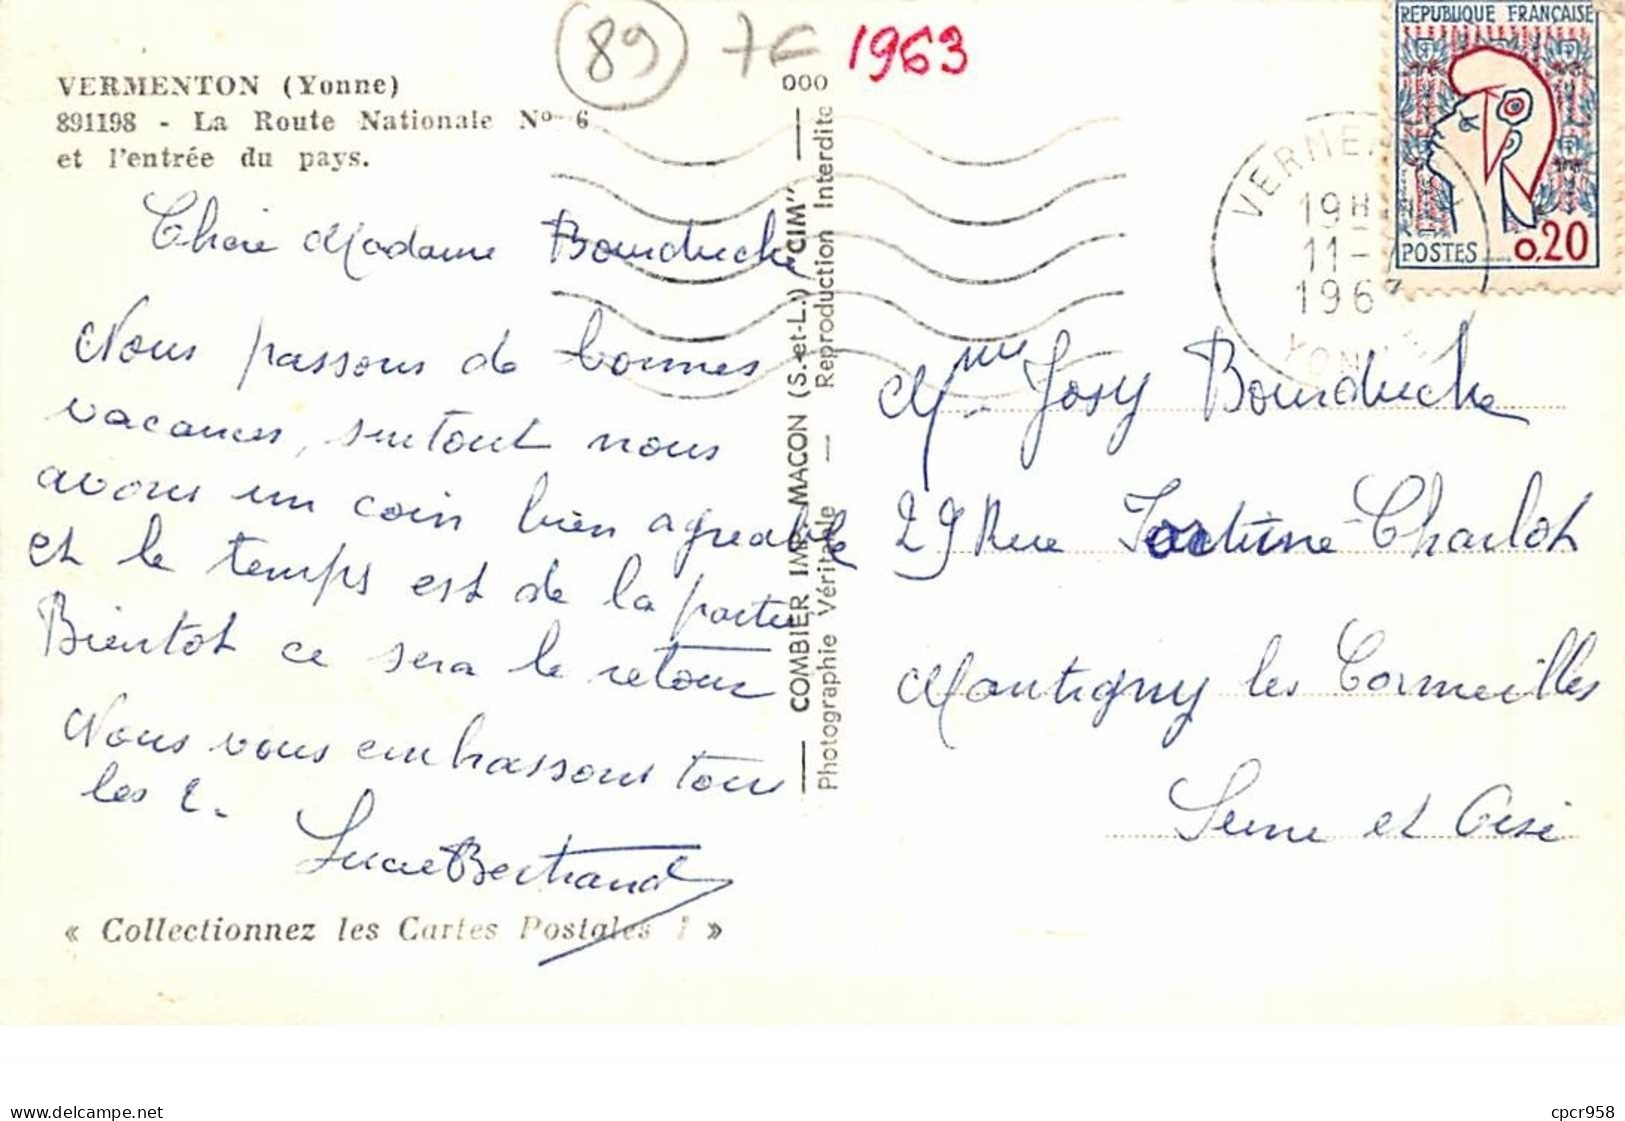 VERMENTON (Yonne)
891198 - La Route Nationale N° 6
et l'entrée du pays.
89 7€ 1963
Chère Madame Bourduche
Nous passons de bonnes
vacances, surtout nous
avons un coin bien agreable
et le temps est de la partie
Bientot ce sera le retour
Nous vous embrassons tous
les 2.
Lucie Bertrand
« Collectionnez les Cartes Postales ! »
000
COMBIER IMP. MACON (S.-et-L.) "CIM"
Photographie Véritable — Reproduction Interdite
REPUBLIQUE FRANÇAISE
POSTES 0,20
19H
11-
196
Mme Josy Bourduche
29 Rue Fortuné-Charlot
Montigny les Cormeilles
Seine et Oise
www.delcampe.net
cpcr958